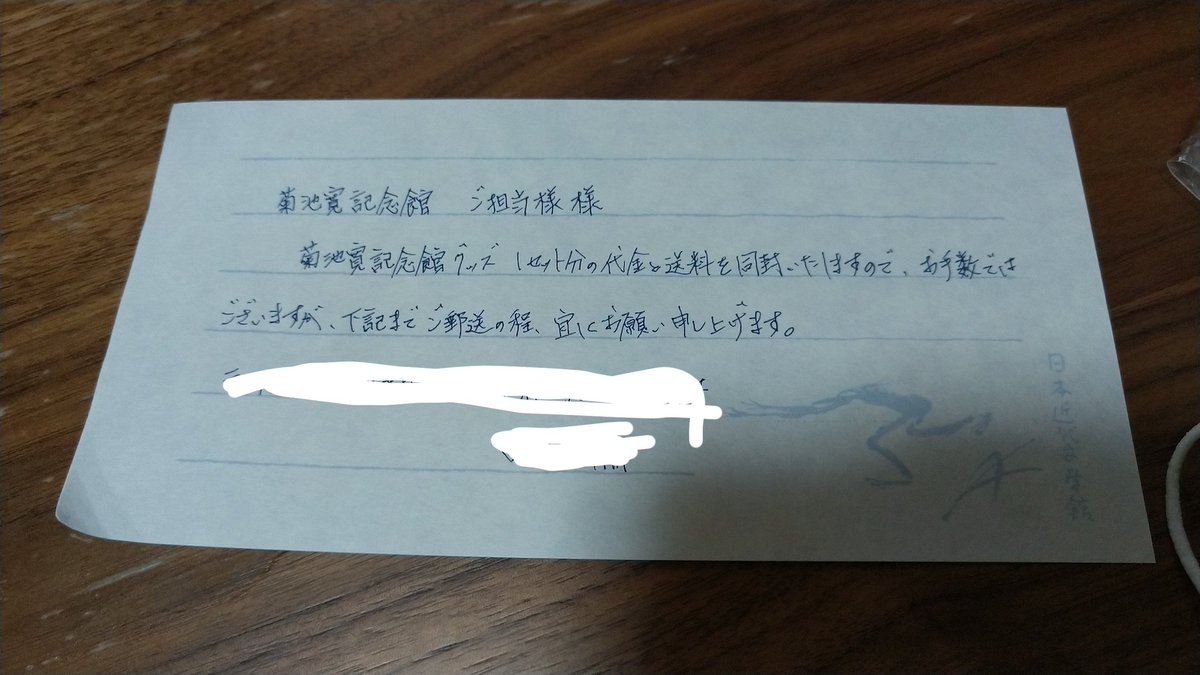 菊池寛記念館　ご担当様 様
菊池寛記念館グッズ 1セット分の代金と送料を同封いたしますので、お手数では
ございますが、下記までご郵送の程、宜しくお願い申し上げます。
日本近代文学館